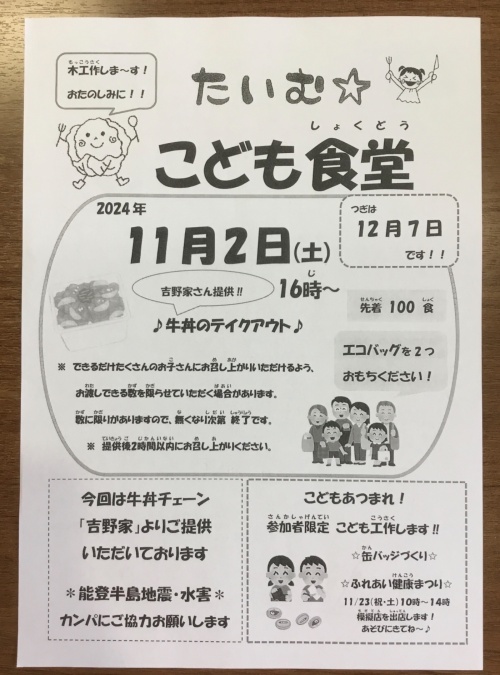 木工作しま～す！
おたのしみに！！
たいむ☆
こども食堂
しょくどう
2024年
11月2日(土)
つぎは
12月7日
です！！
吉野家さん提供!!
16時～
♪牛丼のテイクアウト♪
先着 100 食
エコバッグを2つ
おもちください！
※ できるだけたくさんのお子さんにお召し上がりいただけるよう、
お渡しできる数を限らせていただく場合があります。
数に限りがありますので、無くなり次第 終了です。
※ 提供後2時間以内にお召し上がりください。
今回は牛丼チェーン
「吉野家」よりご提供
いただいております
＊能登半島地震・水害＊
カンパにご協力お願いします
こどもあつまれ！
参加者限定 こども工作します!!
☆缶バッジづくり☆
☆ふれあい健康まつり☆
11/23(祝・土)10時～14時
模擬店を出店します！
あそびにきてね～♪